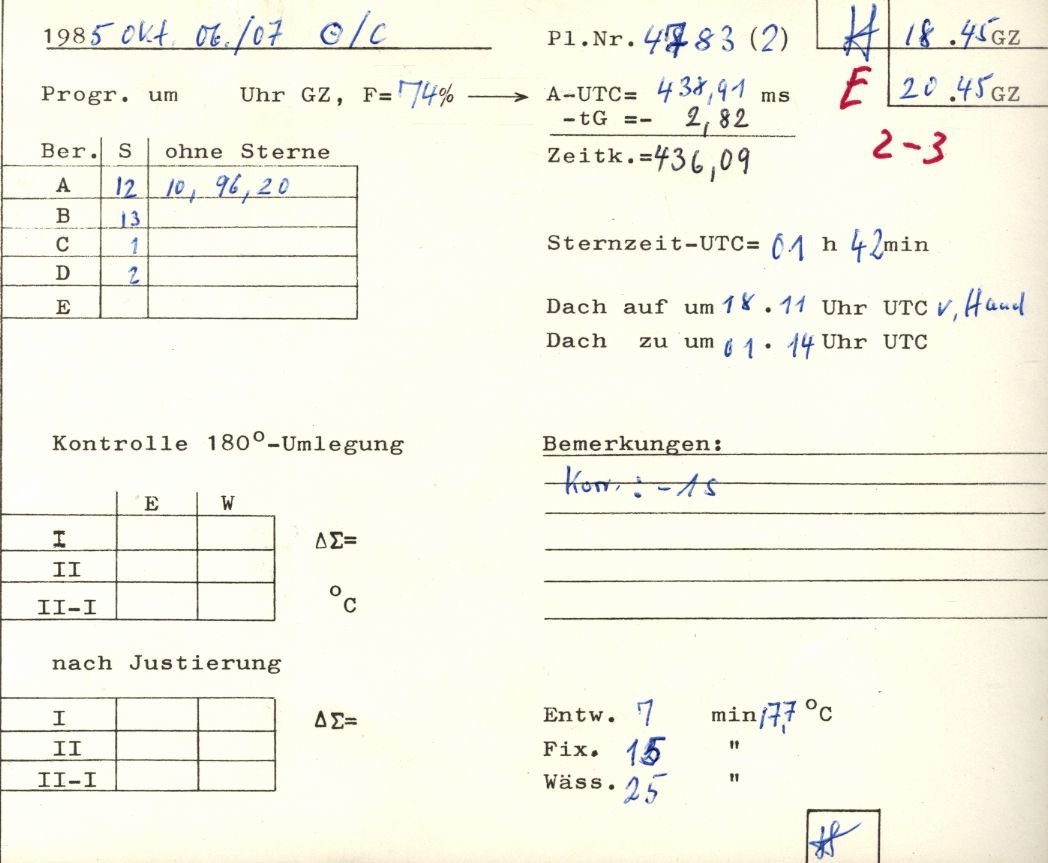 1985 Okt. 06./07 ⊙/C
Pl.Nr. 4783 (2)
H 18.45 GZ
Progr. um Uhr GZ, F= 74% → A-UTC= 438,91 ms
E 20.45 GZ
-tG =- 2,82
Zeitk.=436,09
2-3
Ber. S ohne Sterne
A 12 10, 96, 20
B 13
C 1
D 2
E
Sternzeit-UTC= 01 h 42min
Dach auf um 18.11 Uhr UTC v. Hand
Dach zu um 01.14 Uhr UTC
Kontrolle 180°-Umlegung
E W
I ΔΣ=
II
II-I °C
Bemerkungen:
Korr.: -1s
nach Justierung
I ΔΣ=
II
II-I
Entw. 7 min 17,7 °C
Fix. 15 "
Wäss. 25 "